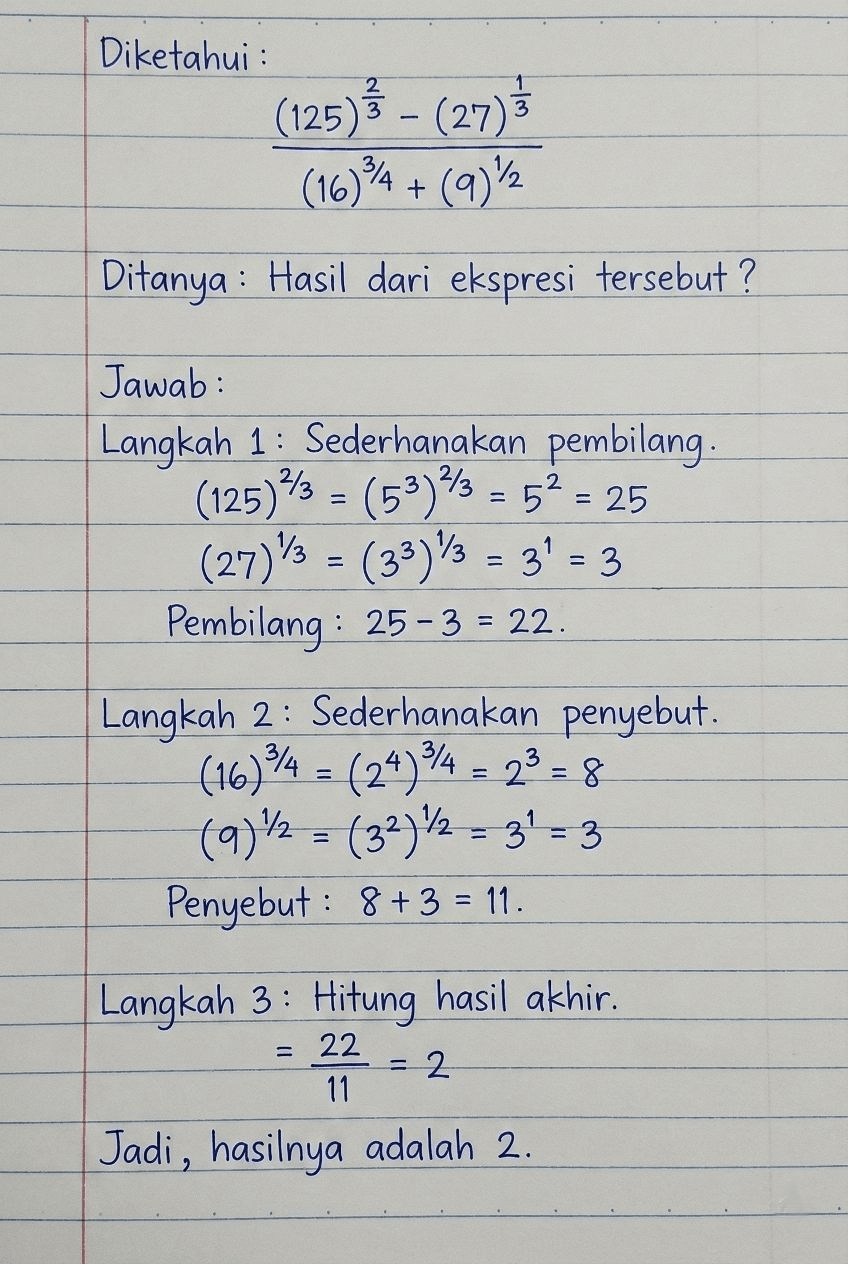 Diketahui :
(125)^{2/3} - (27)^{1/3}
(16)^{3/4} + (9)^{1/2}
Ditanya : Hasil dari ekspresi tersebut ?
Jawab :
Langkah 1 : Sederhanakan pembilang.
(125)^{2/3} = (5^3)^{2/3} = 5^2 = 25
(27)^{1/3} = (3^3)^{1/3} = 3^1 = 3
Pembilang : 25 - 3 = 22.
Langkah 2 : Sederhanakan penyebut.
(16)^{3/4} = (2^4)^{3/4} = 2^3 = 8
(9)^{1/2} = (3^2)^{1/2} = 3^1 = 3
Penyebut : 8 + 3 = 11.
Langkah 3 : Hitung hasil akhir.
= 22/11 = 2
Jadi, hasilnya adalah 2.